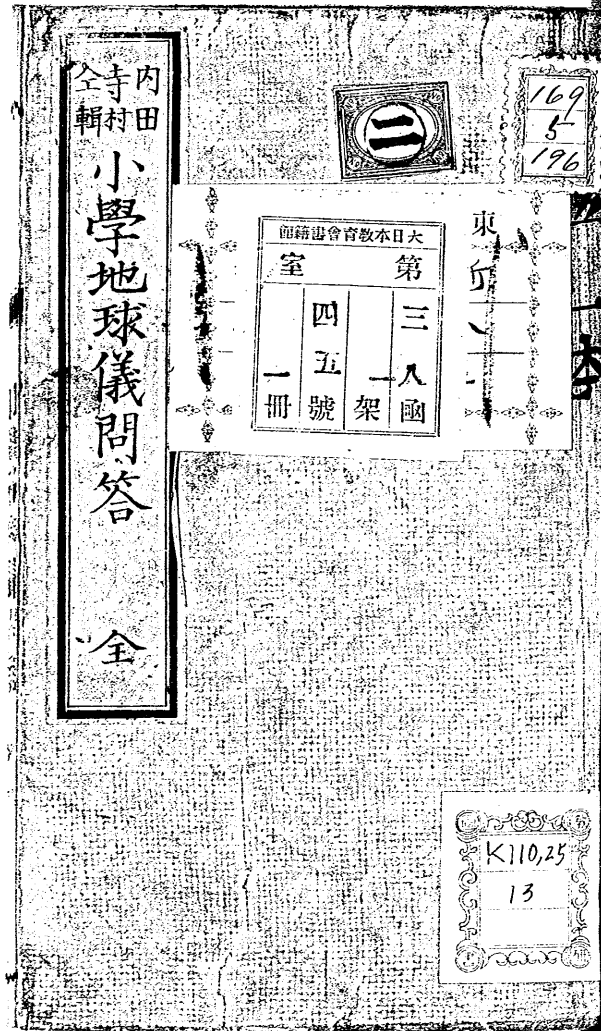 内田
寺村
仝輯
小學地球儀問答 全
二
169
5
196
大日本教育會書籍館
第 室
三八凾
一架
四五號
一冊
東
K110,25
13